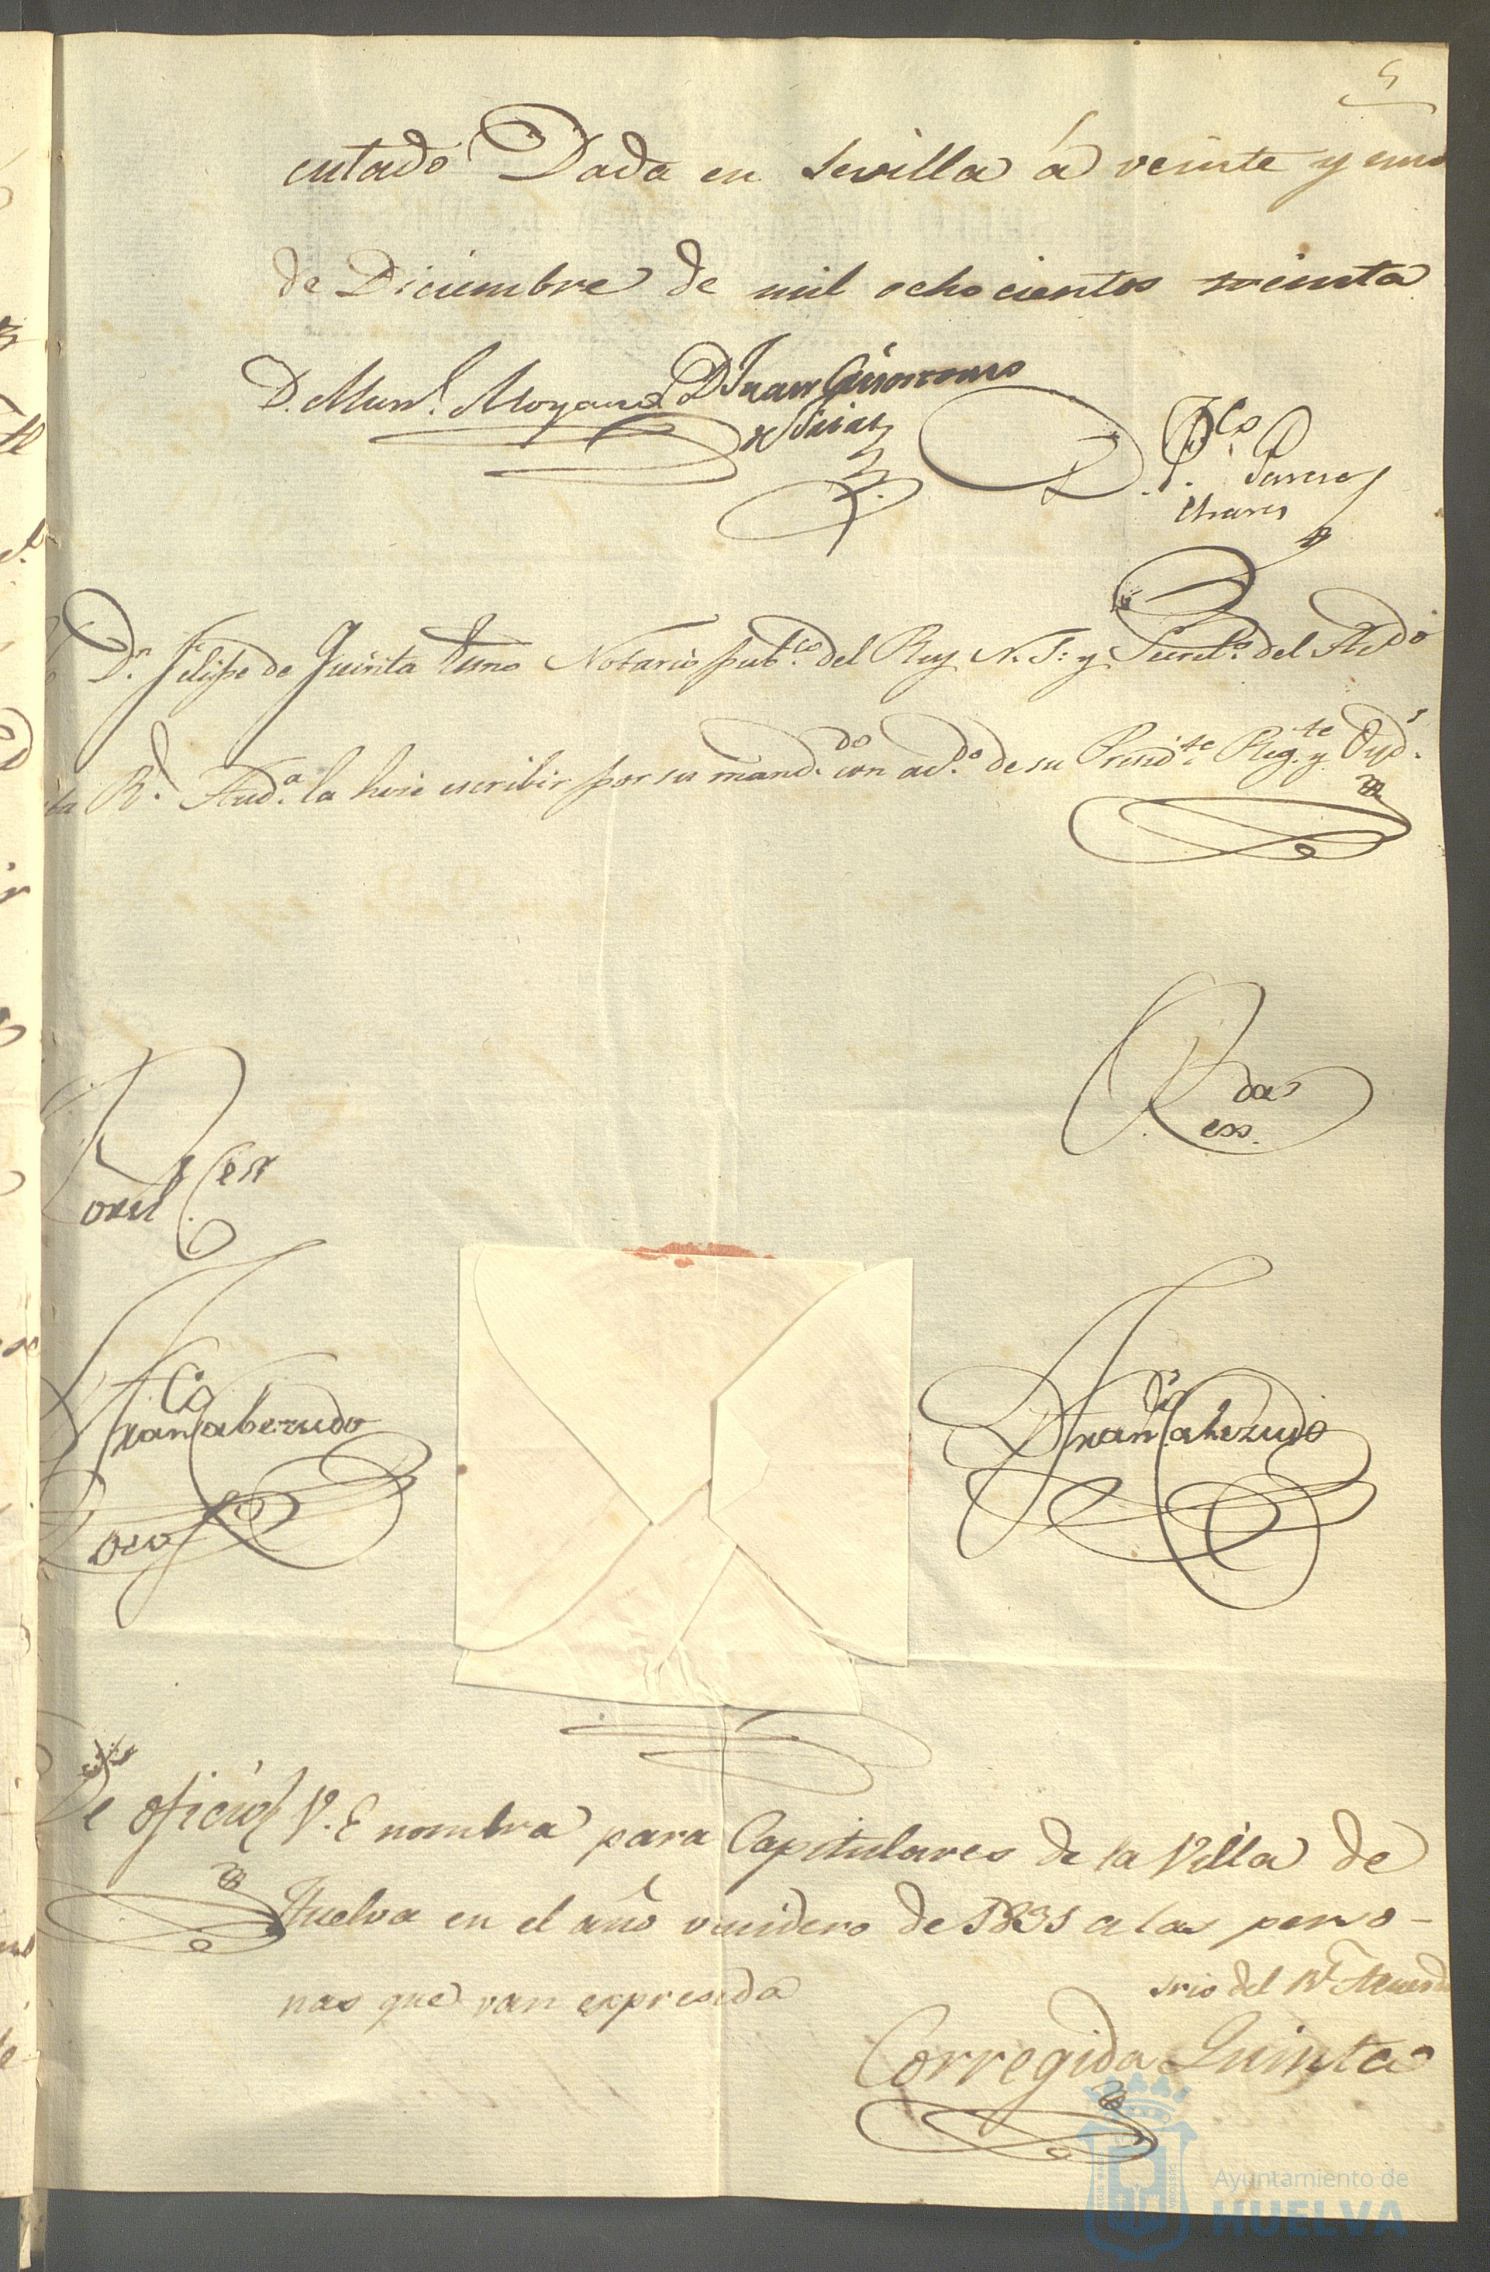 5
cutado Dada en Sevilla á veinte y uno
de Diciembre de mil ochocientos treinta
D. Man.l Moyano
D Juan Geronimo
D. Fco
P. Parexa
Chaves
D.n Felipe de Quinta Luna Notario pub.co del Rey N. S. y Secret.o del Acdo
R.l Aud.a la hice escribir por su mand.do con acd.o de su Presid.te Reg.te y Oyd.s
R da
ess.
Fran.co Caberudo
Fran.co Caberudo
De oficio
V. E nombra para Capitulares de la Villa de
Huelva en el año venidero de 1831 a las perso-
nas que van expresada
srio del Rl Acuerdo
Corregida Quinta
Ayuntamiento de
HUELVA